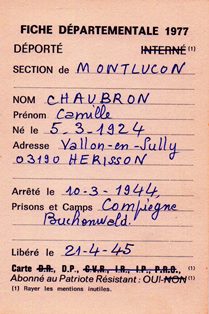 FICHE DÉPARTEMENTALE 1977
DÉPORTÉ INTERNÉ (1)
SECTION de MONTLUCON
NOM CHAUBRON
Prénom Camille
Né le 5-3-1924
Adresse Vallon-en-Sully
03190 HERISSON
Arrêté le 10-3-1944,
Prisons et Camps Compiègne
Buchenwald.
Libéré le 21-4-45
Carte D.R., D.P., C.V.R., I.R., I.P., P.R.O., (1)
Abonné au Patriote Résistant : OUI-NON (1)
(1) Rayer les mentions inutiles.